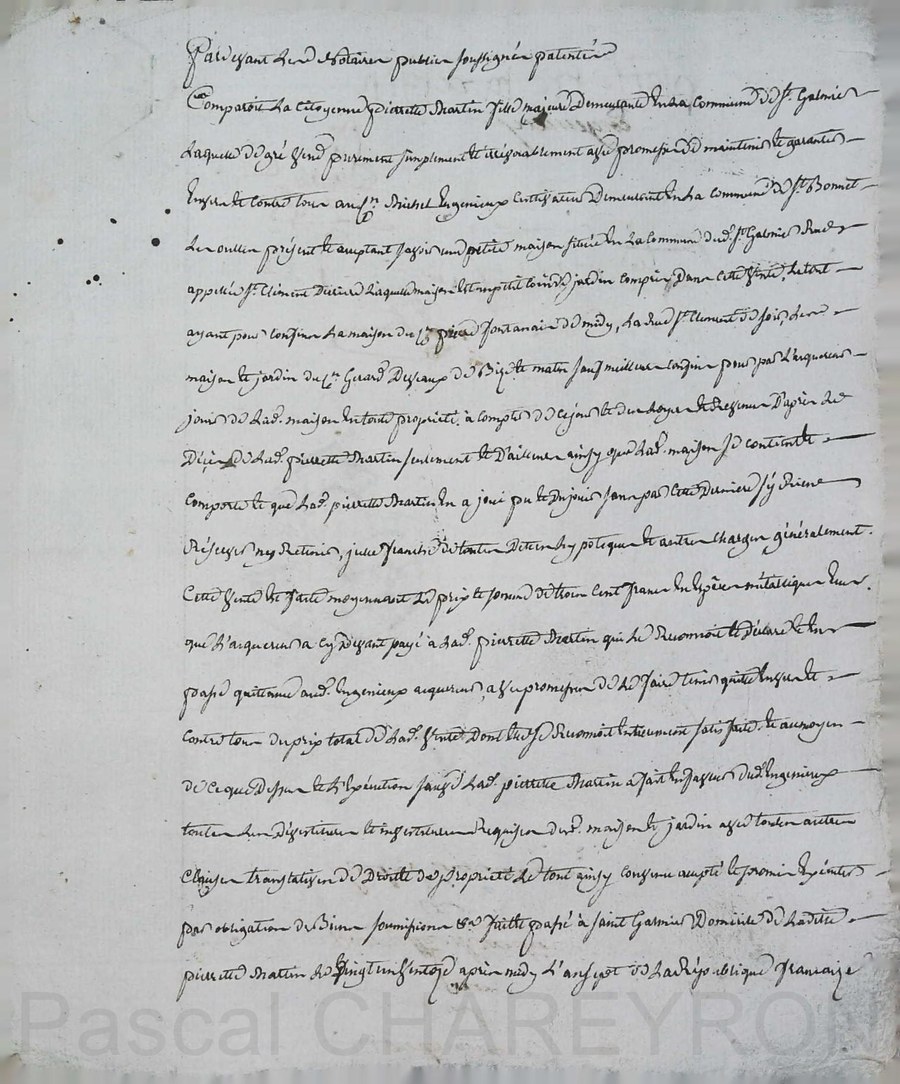 Pardevant Les Notaires publics soussignés patentés
Comparoit La Citoyenne pierrette Martin fille majeure Demeurante En La Commune de St. Galmier
Laquelle de gré vend purement simplement et irrévocablement avec promesse de maintenir et garantir
Envers et Contre tous au Cn Michel Ingenieux Cultivateur Demeurant En La Commune de St. Bonnet
Les oulles présent et acceptant savoir une petite maison située En La Commune dud. St. Galmier Rue
appellée St. Clément Derrière Laquelle maison est un petit coin de jardin compris Dans Cette vente, Le tout
ayant pour Confins La maison du Cn pierre fontanais de midy, La Rue St. Clement de soir, Les
maison et jardin du Cn Gerard Desvaux de Bize et matin sauf meilleurs Confins pour par L'acquereur
jouir de Lad. maison En toute propriété à compter de Ce jour et des Loyers et Revenus D'après Le
Décès de Lad. pierrette Martin seulement et D'ailleurs ainsy que Lad. maison se contient et
Comporte et que Lad. pierrette Martin En a joui pu et Du jouir sans par Cette Derniere s'y Rien
Réserver ny Retenir, icelle franche de toutes Dettes hypoteques et autres Charges généralement.
Cette vente Est faite moyennant Le prix et somme de trois Cent francs En Espèces métalliques
que L'acquereur a Cy devant payé à Lad. pierrette Martin qui Le Reconnoit et Déclare et En
passe quittance aud. Ingenieux acquereur, avec promesse de Le faire tenir quitte Envers et
Contre tous du prix total de Lad. vente Dont Elle se Reconnoit Entierement satisfaite. et au moyen
de Ce que Dessus et L'Exécution sauve Lad. pierrette Martin a fait En faveur dud. Ingenieux
toutes Les Dévestitures et investitures Requises desd. maison et jardin avec toutes autres
Clauses translatives de Droits de propriété Le tout ainsy Convenu accepté et promis Exécuter
par obligation de Biens soumissions &a fait et passé à saint Galmier Domicile de Ladite
pierrette Martin Le vingt un ventose après midy L'an sept de La République française
Pascal CHAREYRON